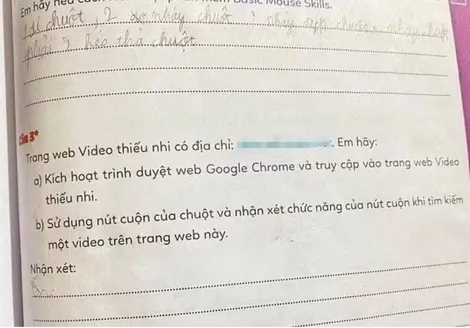 Em hãy
Basic Mouse Skills.
di chuột, 2
phải 5 kéo thả chuột
Câu 3*
Trang web Video thiếu nhi có địa chỉ: . Em hãy:
a) Kích hoạt trình duyệt web Google Chrome và truy cập vào trang web Video
thiếu nhi.
b) Sử dụng nút cuộn của chuột và nhận xét chức năng của nút cuộn khi tìm kiếm
một video trên trang web này.
Nhận xét: